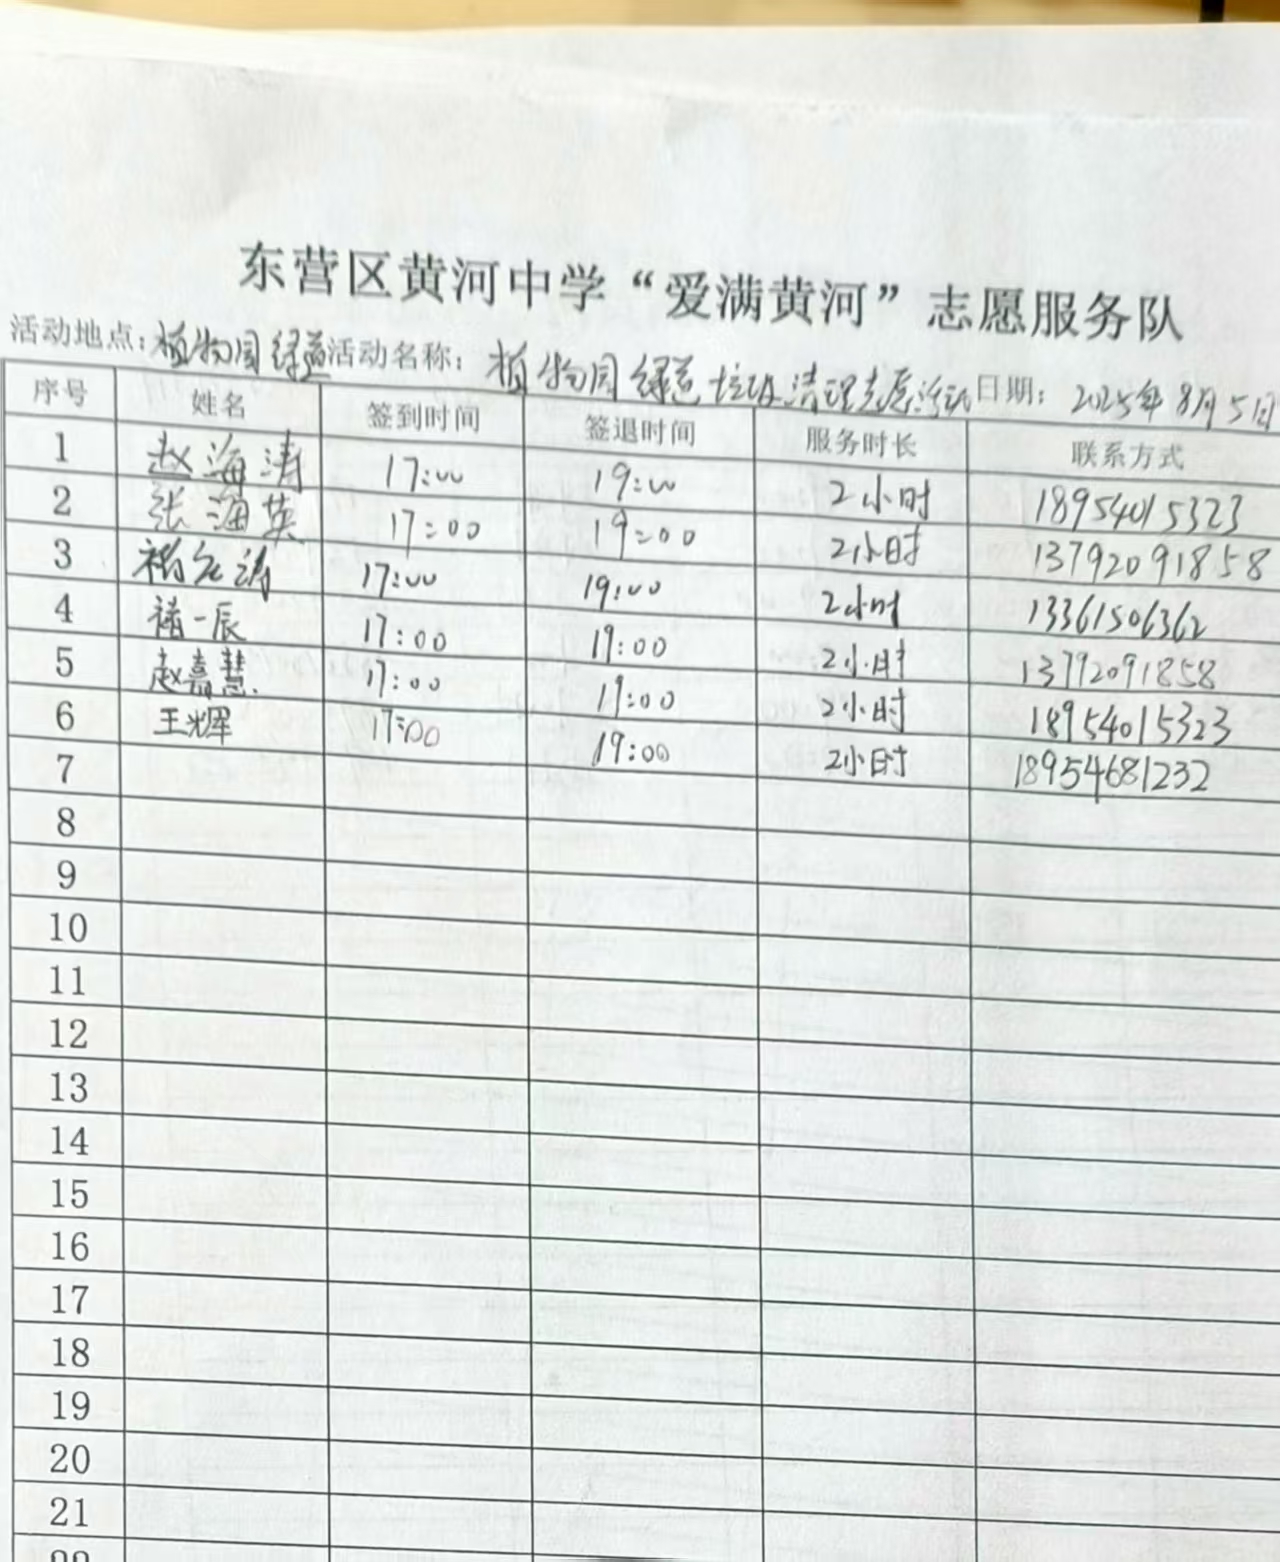 东营区黄河中学“爱满黄河”志愿服务队
活动地点：植物园绿道 活动名称：植物园绿道垃圾清理志愿活动 日期：2025年8月5日
序号 姓名 签到时间 签退时间 服务时长 联系方式
1 赵海涛 17:00 19:00 2小时 18954015323
2 张海英 17:00 19:00 2小时 13792091858
3 褚 涛 17:00 19:00 2小时 13361506362
4 褚一辰 17:00 19:00 2小时 13792091858
5 赵嘉慧 17:00 19:00 2小时 18954015323
6 王辉 17:00 19:00 2小时 18954681232
7
8
9
10
11
12
13
14
15
16
17
18
19
20
21